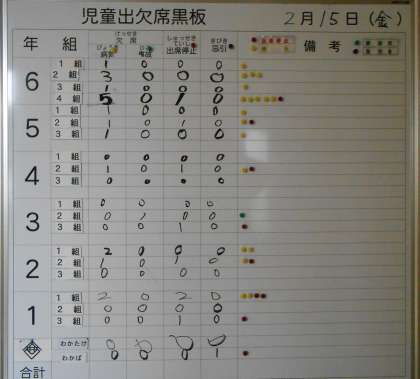 児童出欠席黒板 2月15日(金)
年 組 けっせき 欠席 びょうき 病気 じこ 事故 しゅっせきていし 出席停止 きびき 忌引 備考
6
1組 1 0 0 0
2組 3 0 0 0
3組 1 0 0 0
4組 5 0 1 0
5
1組 1 0 0 0
2組 1 0 1 0
3組 1 0 0 0
4
1組 0 0 0 0
2組 1 0 1 0
3組 0 0 0 0
3
1組 0 0 0 0
2組 0 1 0 0
3組 0 0 1 0
2
1組 2 0 0 0
2組 1 0 1 0
3組 0 0 0 0
1
1組 2 0 2 0
2組 0 0 0 0
3組 0 0 1 0
わかたけ 0 0 0 0
わかば 0 0 0 1
合計